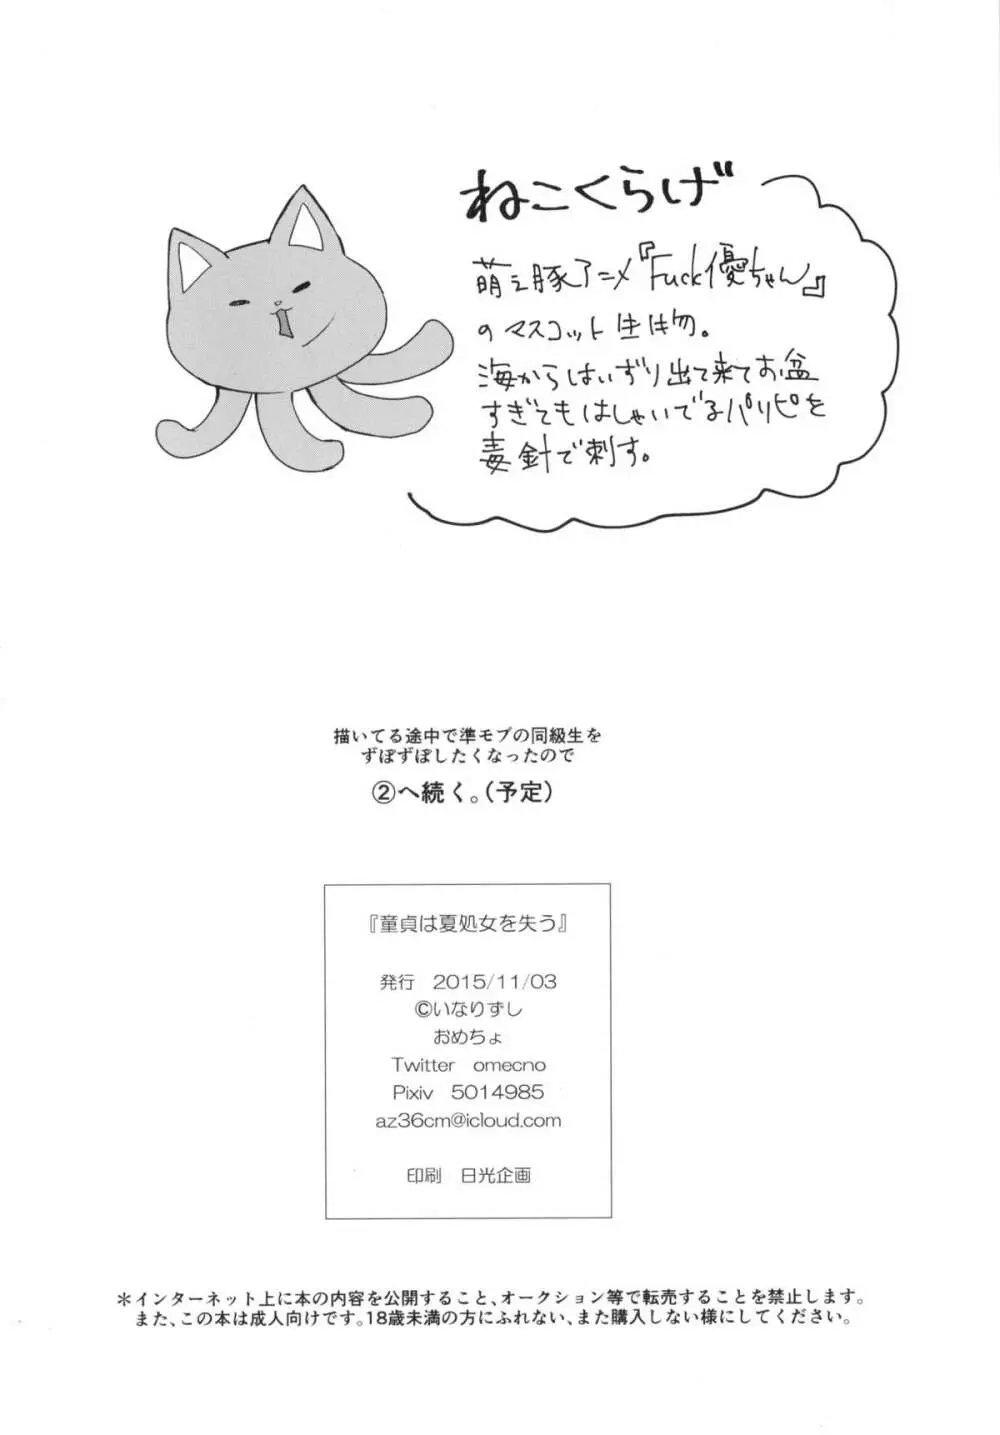 ねこくらげ
萌え豚アニメ『Fuck優ちゃん』
のマスコット生き物。
海からはいずり出て来てお盆
すぎてもはしゃいでるパリピを
毒針で刺す。
描いてる途中で準モブの同級生を
ずぽずぽしたくなったので
②へ続く。(予定)
『童貞は夏処女を失う』
発行 2015/11/03
©いなりずし
おめちょ
Twitter omecno
Pixiv 5014985
az36cm@icloud.com
印刷 日光企画
＊インターネット上に本の内容を公開すること、オークション等で転売することを禁止します。
また、この本は成人向けです。18歳未満の方にふれない、また購入しない様にしてください。